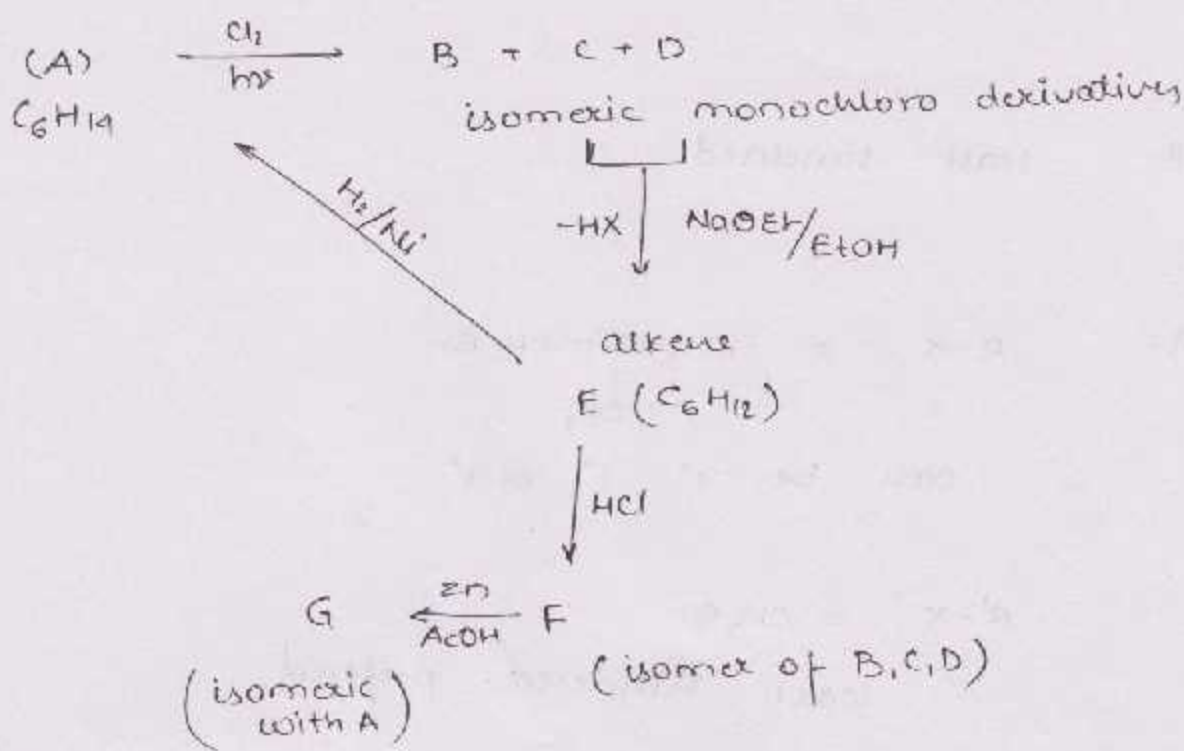 (A) Cl₂ B + C + D
hν
C₆H₁₄ isomeric monochloro derivatives
H₂/Ni
-HX NaOEt/EtOH
alkene
E (C₆H₁₂)
HCl
G Zn F
AcOH
(isomeric with A) (isomer of B, C, D)